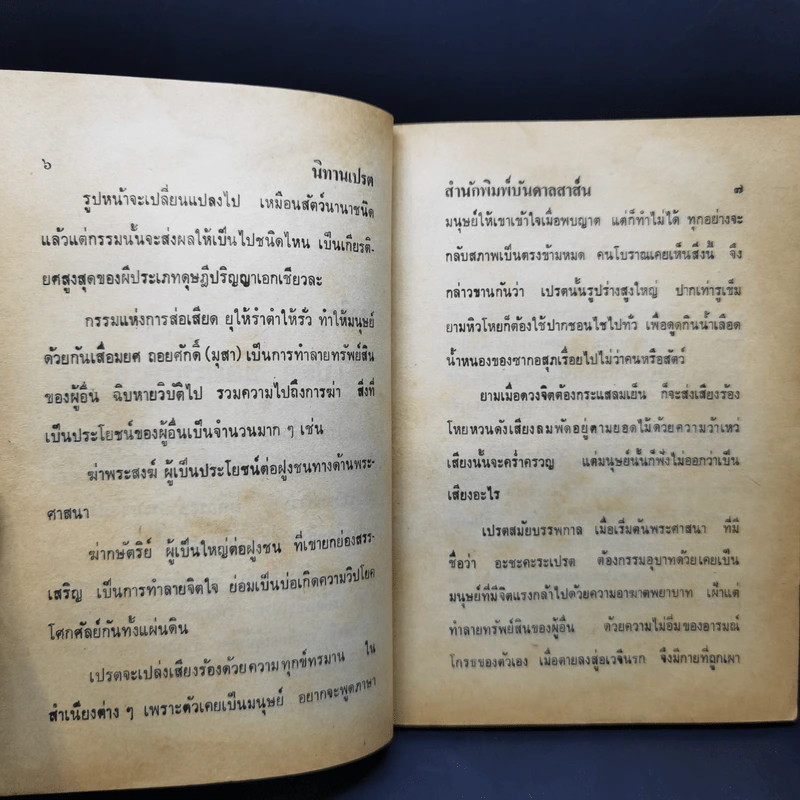 ๖ นิทานเปรต
รูปหน้าจะเปลี่ยนแปลงไป เหมือนสัตว์นานาชนิด
แล้วแต่กรรมนั้นจะส่งผลให้เป็นไปชนิดไหน เป็นเกียรติ-
ยศสูงสุดของผีประเภทดุษฎีปริญญาเอกเชียวละ
กรรมแห่งการส่อเสียด ยุให้รำตำให้รั่ว ทำให้มนุษย์
ด้วยกันเสื่อมยศ ถอยศักดิ์ (มุสา) เป็นการทำลายทรัพย์สิน
ของผู้อื่น ฉิบหายวิบัติไป รวมความไปถึงการฆ่า สิ่งที่
เป็นประโยชน์ของผู้อื่นเป็นจำนวนมาก ๆ เช่น
ฆ่าพระสงฆ์ ผู้เป็นประโยชน์ต่อฝูงชนทางด้านพระ-
ศาสนา
ฆ่ากษัตริย์ ผู้เป็นใหญ่ต่อฝูงชน ที่เขายกย่องสรร-
เสริญ เป็นการทำลายจิตใจ ย่อมเป็นบ่อเกิดความวิปโยค
โศกศัลย์กันทั้งแผ่นดิน
เปรตจะเปล่งเสียงร้องด้วยความทุกข์ทรมาน ใน
สำเนียงต่าง ๆ เพราะตัวเคยเป็นมนุษย์ อยากจะพูดภาษา
สำนักพิมพ์บันดาลสาส์น ๗
มนุษย์ให้เขาเข้าใจเมื่อพบญาต แต่ก็ทำไม่ได้ ทุกอย่างจะ
กลับสภาพเป็นตรงข้ามหมด คนโบราณเคยเห็นสิ่งนี้ จึง
กล่าวขานกันว่า เปรตนั้นรูปร่างสูงใหญ่ ปากเท่ารูเข็ม
ยามหิวโหยก็ต้องใช้ปากชอนไชไปทั่ว เพื่อดูดกินน้ำเลือด
น้ำหนองของซากอสุภเรื่อยไปไม่ว่าคนหรือสัตว์
ยามเมื่อดวงจิตต้องกระแสลมเย็น ก็จะส่งเสียงร้อง
โหยหวนดังเสียงลมพัดอยู่ตามยอดไม้ด้วยความว้าเหว่
เสียงนั้นจะคร่ำครวญ แต่มนุษย์นั้นก็ฟังไม่ออกว่าเป็น
เสียงอะไร
เปรตสมัยบรรพกาล เมื่อเริ่มต้นพระศาสนา ที่มี
ชื่อว่า อะชะคะระเปรต ต้องกรรมอุบาทด้วยเคยเป็น
มนุษย์ที่มีจิตแรงกล้าไปด้วยความอาฆาตพยาบาท เฝ้าแต่
ทำลายทรัพย์สินของผู้อื่น ด้วยความไม่อิ่มของอารมณ์
โกรธของตัวเอง เมื่อตายลงสู่อเวจีนรก จึงมีกายที่ถูกเผา